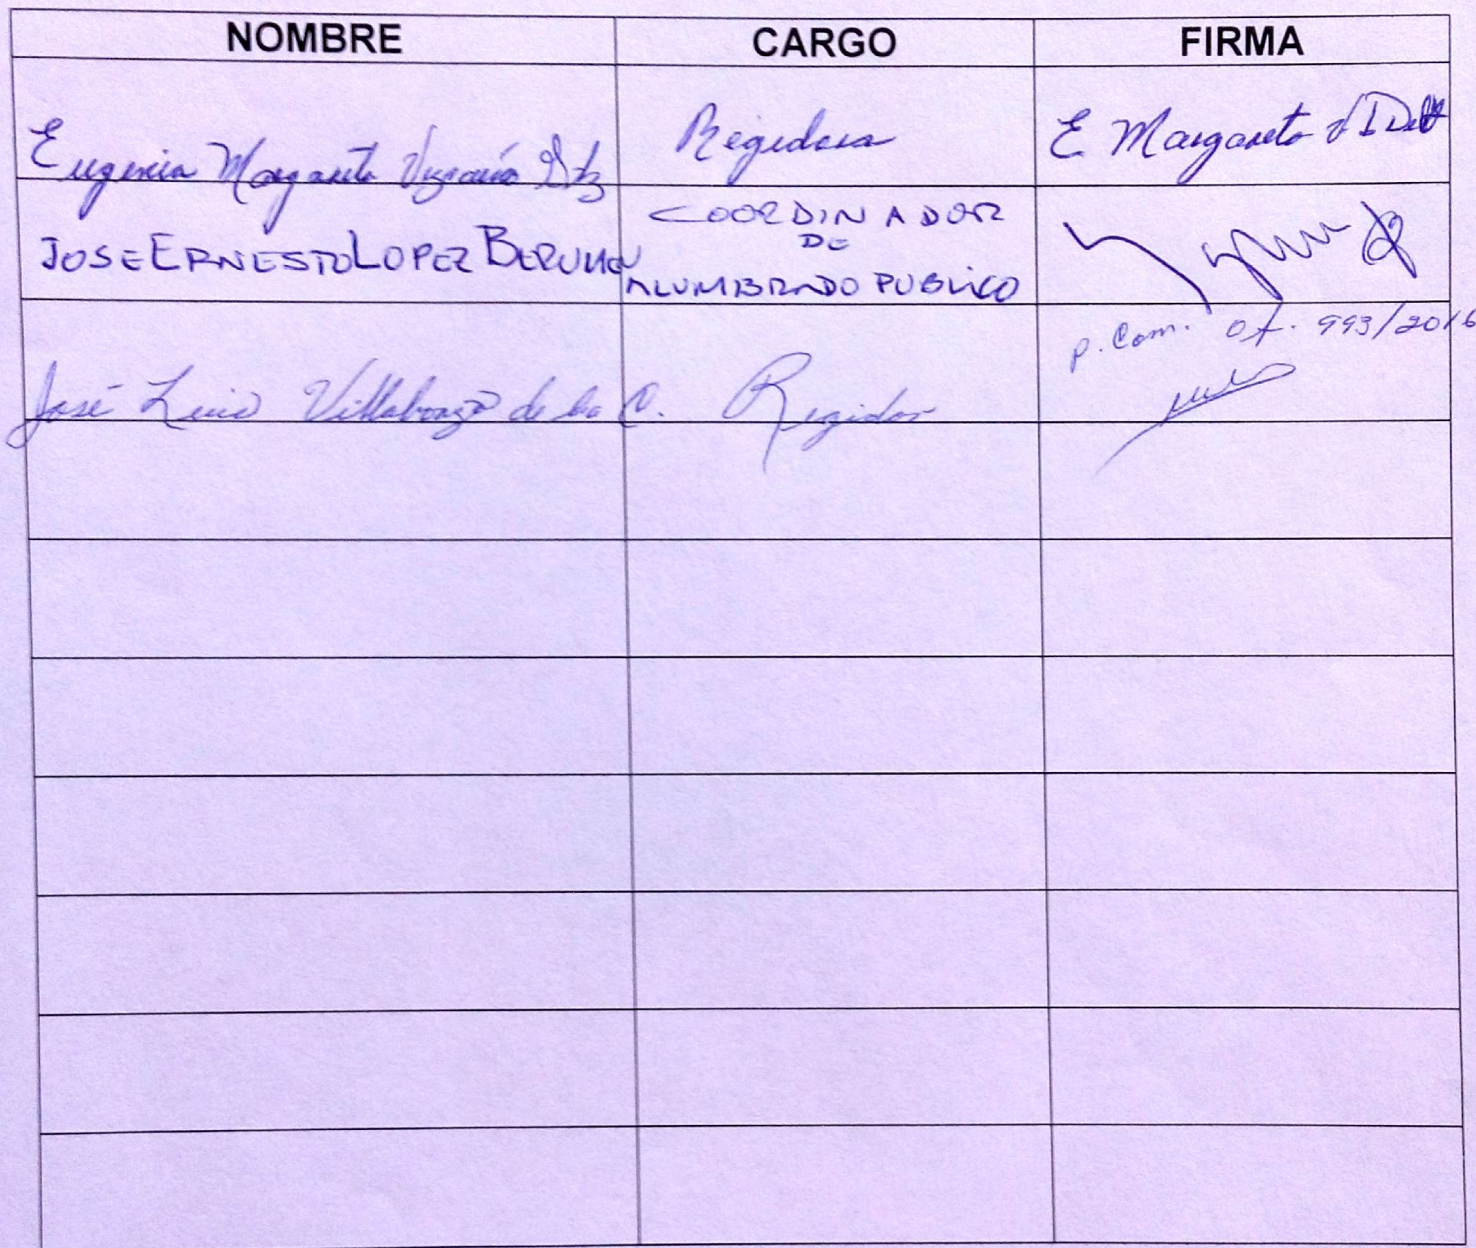 NOMBRE CARGO FIRMA
Eugenia Margarita Vizcaíno Gtz Regidora E. Margarita
JOSE ERNESTO LOPEZ BERUMEN COORDINADOR
DE
ALUMBRADO PUBLICO
p. Com. of. 993/2016
José Luis Villalvazo de la C. Regidor